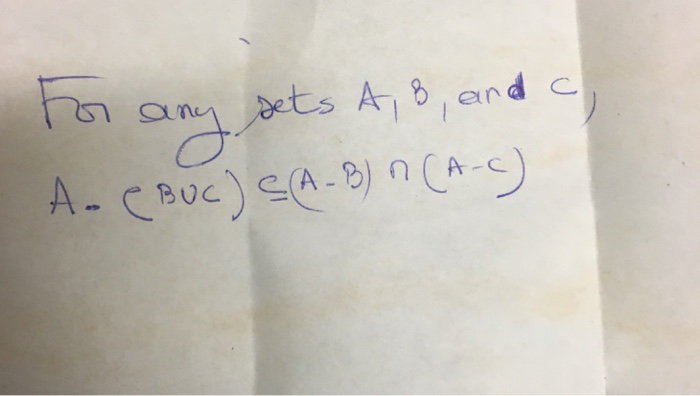 For any sets A, B, and C,
A - (B∪C) ⊆ (A - B) ∩ (A - C)